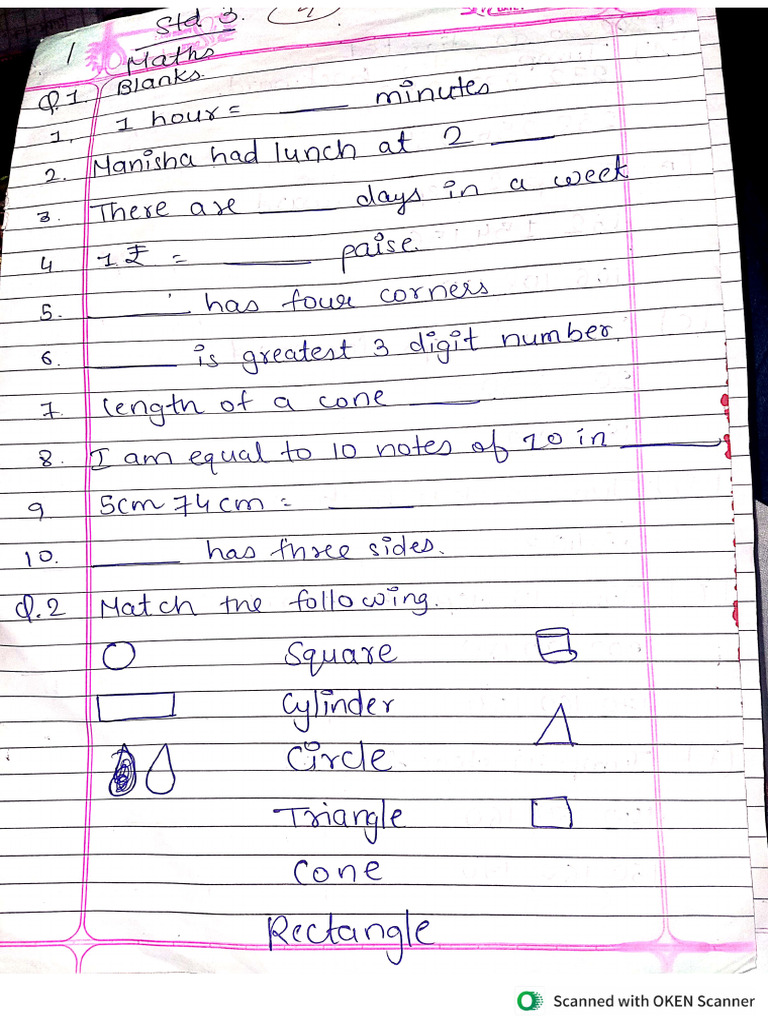 Std. 3.
1
Maths
Q.1. Blanks.
1. 1 hour = ______ minutes
2. Manisha had lunch at 2 ______
3. There are ______ days in a week
4 1 ₹ = ______ paise.
5. ______ has four corners
6. ______ is greatest 3 digit number.
7. Length of a cone ______.
8. I am equal to 10 notes of 10 in ______
9 5cm 74cm = ______
10. ______ has three sides.
Q.2 Match the following.
Square
Cylinder
Circle
Triangle
Cone
Rectangle
Scanned with OKEN Scanner